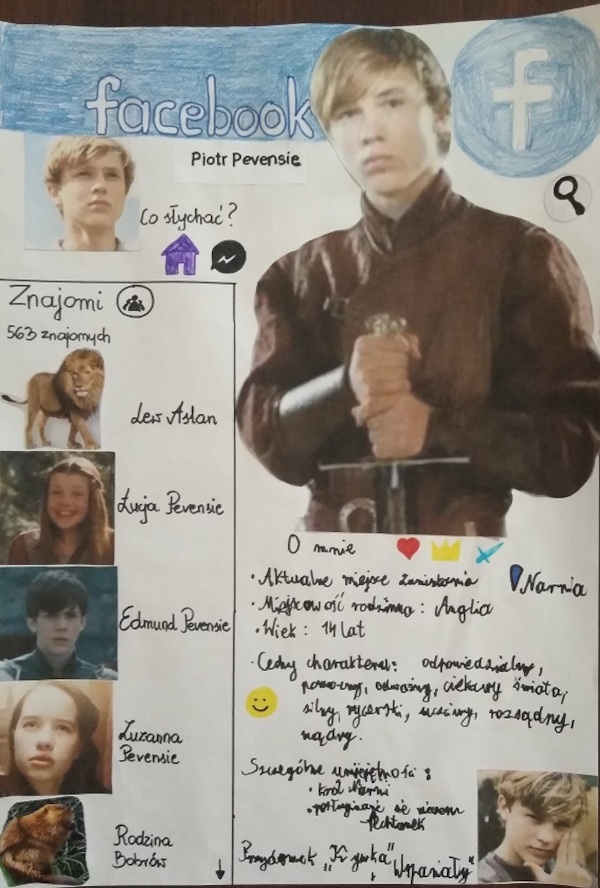 facebook
f
Piotr Pevensie
Co słychać?
Znajomi
563 znajomych
Lew Aslan
Łucja Pevensie
Edmund Pevensie
Zuzanna
Pevensie
Rodzina
Bobrów
O mnie
• Aktualne miejsce zamieszkania Narnia
• Miejscowość rodzinna: Anglia
• Wiek: 14 lat
• Cechy charakteru: odpowiedzialny,
pomocny, odważny, ciekawy świata,
silny, rycerski, uczciwy, rozsądny,
mądry.
Szczególne umiejętności:
• król Narnii
• posługiwać się mieczem
Przydomek "Wspaniały"